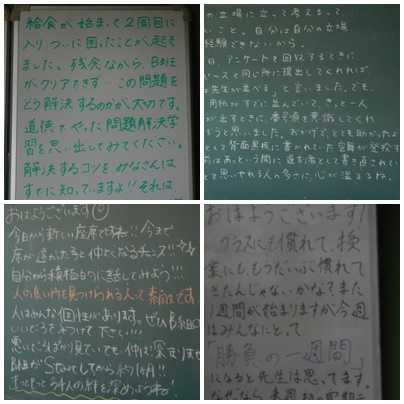 給食が始まって2週目に
入りついに困ったことが起き
ました。残念ながら、B組
がクリアできず…この問題を
どう解決するのかが大切です。
道徳でやった問題解決学
習を思い出してみてください。
解決するコツをみなさんは
すでに知っていますよ!!それは
の立場に立って考えまって
いこと。自分は自分の立場
経験できないから。
日、アンケートを回収するときに
ースと同じ所に提出してくれれば
先生が並べる」と言いました。でも、
用紙がすでに並んでいて、きっと一人
が出すときに、番号順を意識してくれ
うと思いました。おかげで、とても助かったよ
として背面黒板に書かれていた
前はあっという間に直した者として書き直されてい
て思いやれる人の多さに、心が温まるね。
おはようございます
今日から新しい座席ですね!!今まで
席が遠かった子と仲よくなるチャンス!!
自分から積極的に話してみよう!!!
人の良い所を見つけられる人って素敵です
人はみんな個性があります。ぜひ
いいところをみつけて下さい!!!
悪いところばかり見ていても、仲は深まりませ
B組がStartしてから約1ヶ月!!
もっともっと41人の絆を深めようね!
おはようございます!
クラスにも慣れて、授
業にも、もうだいぶ慣れて
きたんじゃないかな?また
1週間が始まりますが今週
はみんなにとって
「勝負の一週間」
になると先生は思ってます。
なぜなら、来週初の定期テ